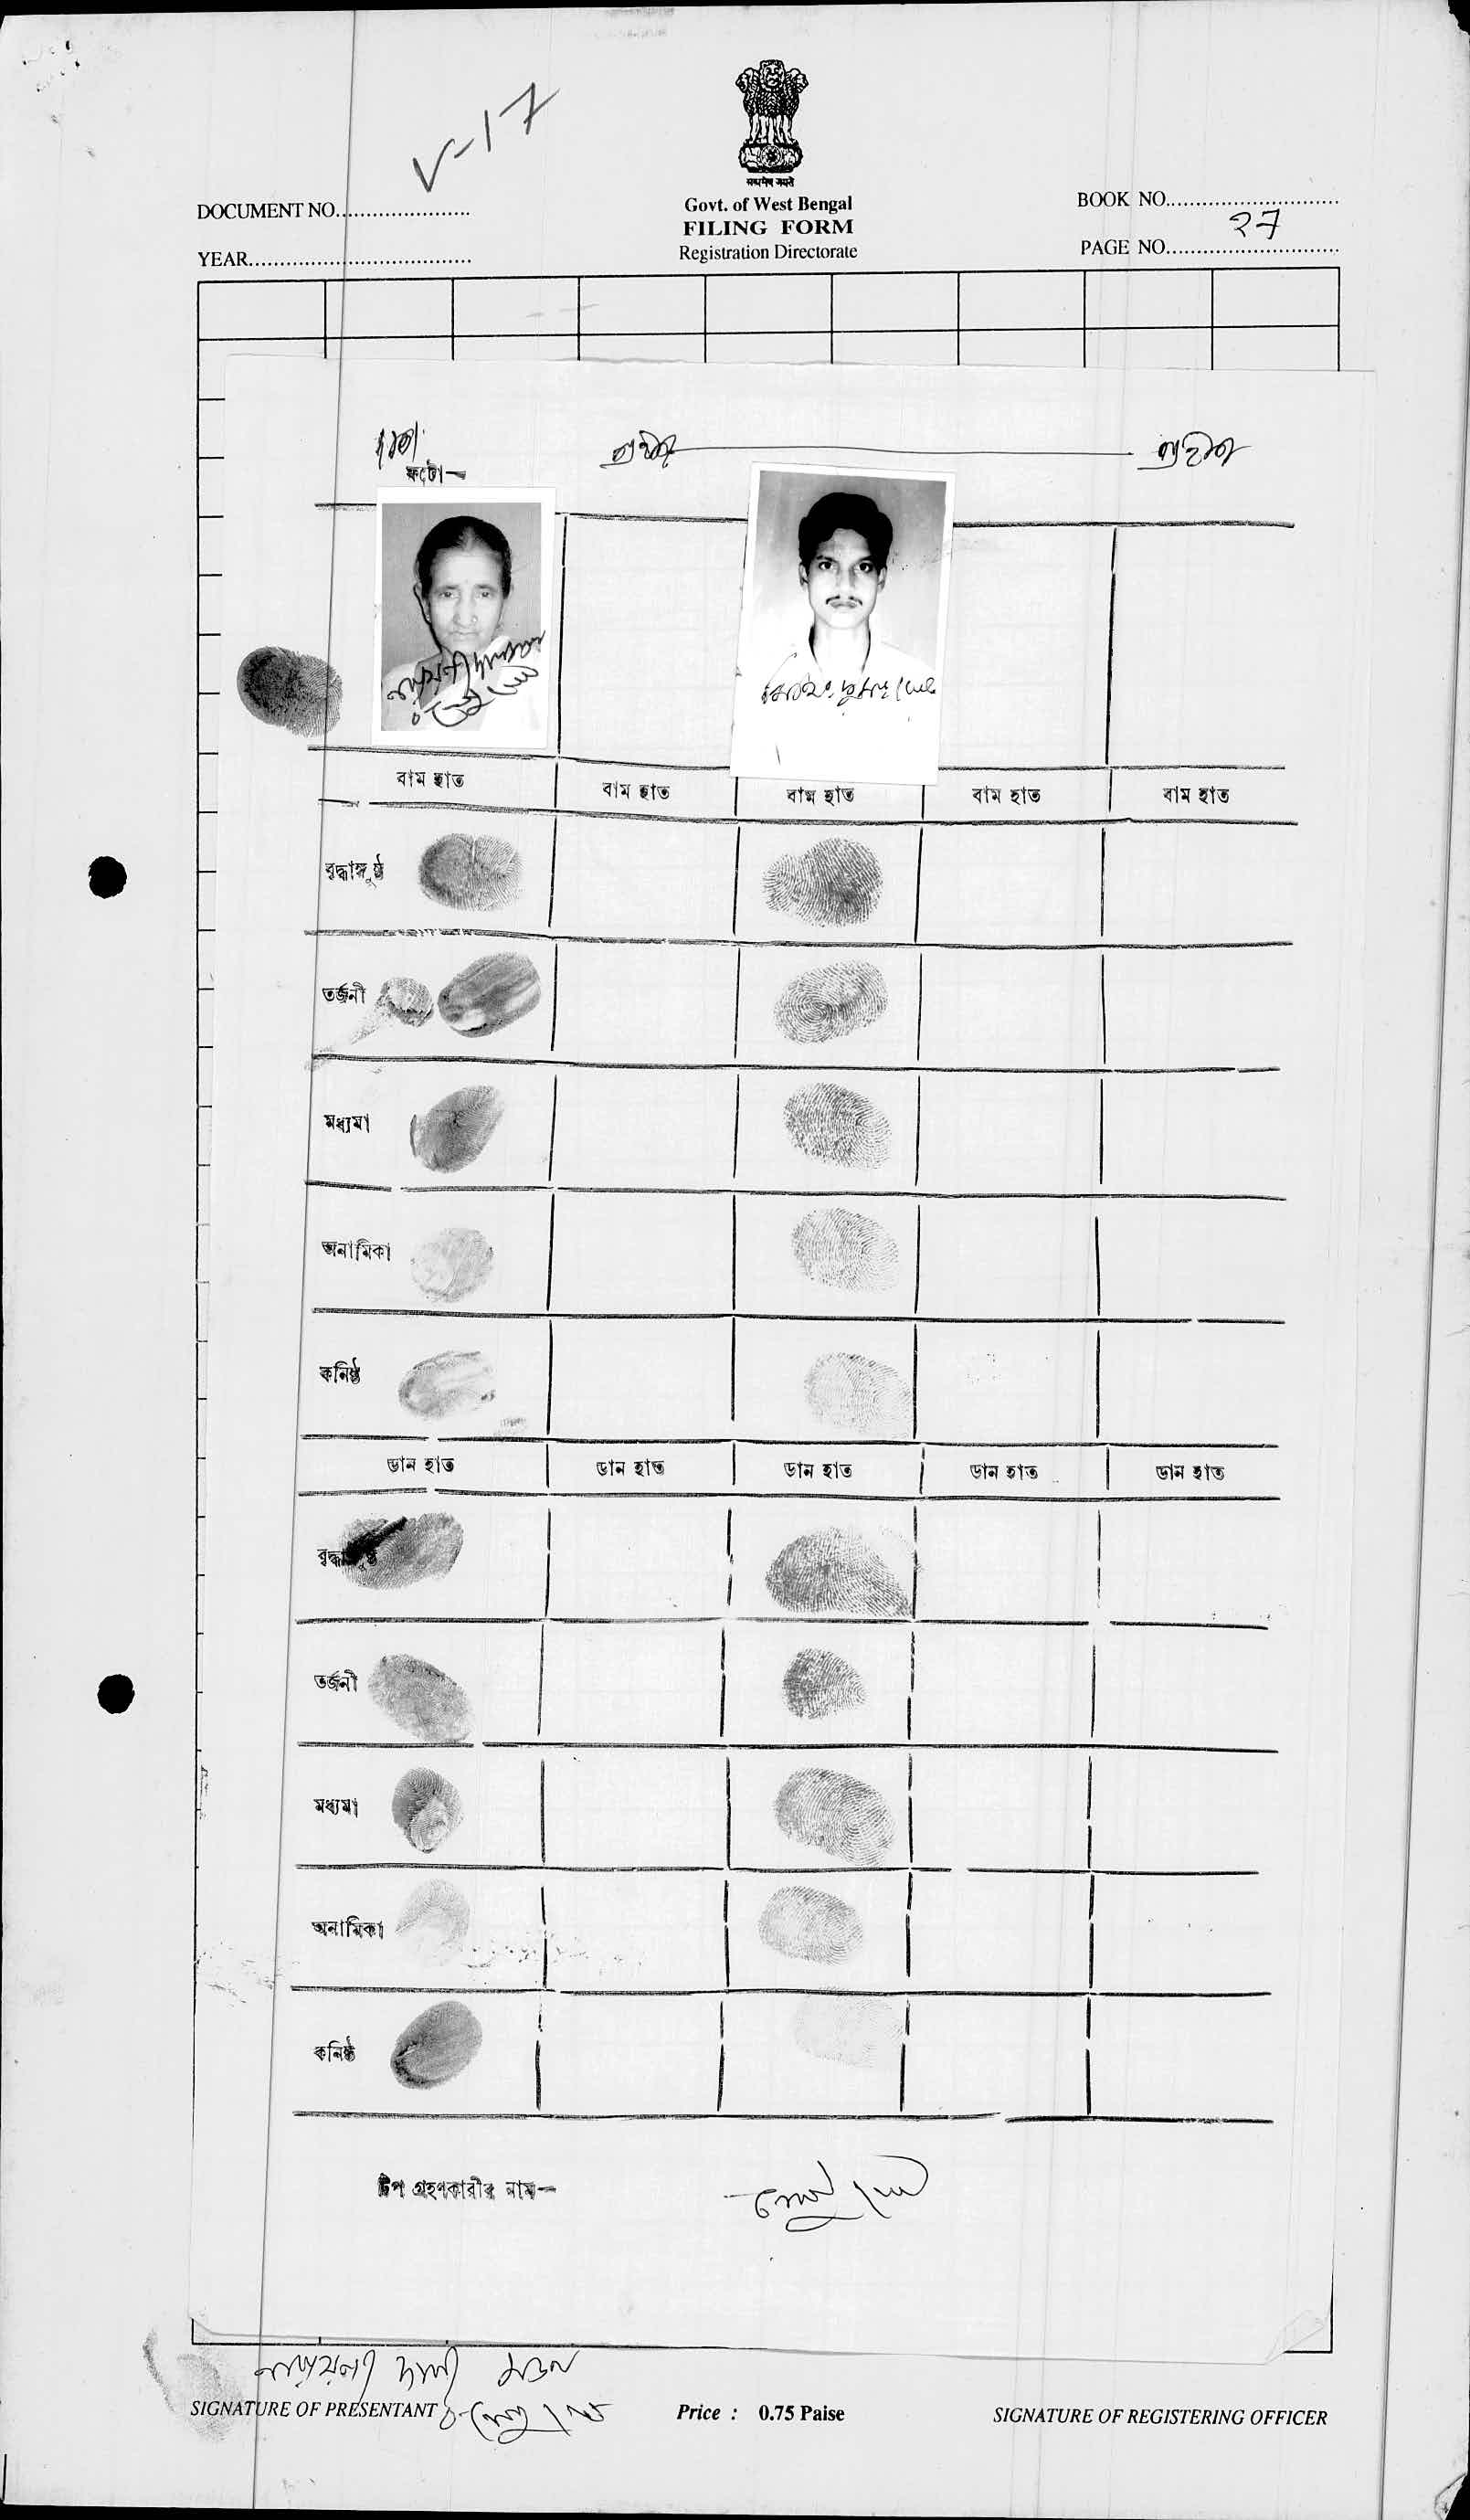 V-17
सत्यमेव जयते
DOCUMENT NO......................
Govt. of West Bengal
BOOK NO.............................
FILING FORM
YEAR....................................
Registration Directorate
PAGE NO. 27
ফটো—
গ্রহীতা গ্রহীতা
বাম হাত বাম হাত বাম হাত বাম হাত বাম হাত
বৃদ্ধাঙ্গুষ্ঠ
তর্জনী
মধ্যমা
অনামিকা
কনিষ্ঠ
ডান হাত ডান হাত ডান হাত ডান হাত ডান হাত
বৃদ্ধাঙ্গুষ্ঠ
তর্জনী
মধ্যমা
অনামিকা
কনিষ্ঠ
টিপ গ্রহণকারীর নাম—
নারায়নী দাসী মণ্ডল
SIGNATURE OF PRESENTANT
Price : 0.75 Paise
SIGNATURE OF REGISTERING OFFICER